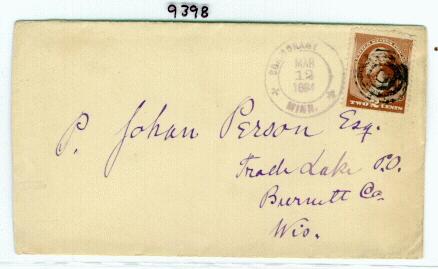 9398
MAR
12
1884
MINN.
TWO 2 CENTS
P. Johan Person Esq.
Trade Lake P.O.
Burnett Co.
Wis.